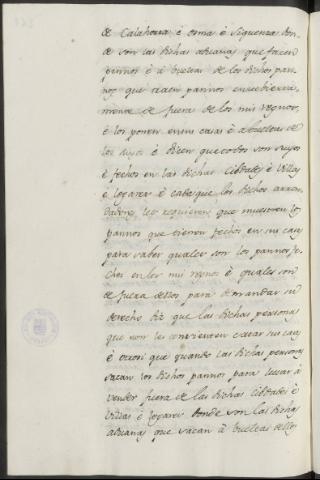 de Calahorra é osma é Siguenza don-
de son las dichas aduanas que facen
pannos é á bueltas de los dichos pan-
nos que traen pannos encubierta-
mente de fuera de los mis regnos,
é los ponen en sus casas á abueltas de
los suyos é dicen que todos son suyos
é fechos en las dichas Cibdades é Villas
é logares é cada que los dichos arren-
dadores les requieren que muestren los
pannos que tienen fechos en sus casas
para saber quales son los pannos fe-
chos en los mis regnos é quales son
de fuera dellos para demandar su
derecho diz que las dichas personas
que non les consienten catar sus casas
é otrosi que quando las dichas personas
sacan los dichos pannos para levar á
vender fuera de las dichas Cibdades é
Villas é logares donde son las dichas
aduanas que sacan á bueltas dellos